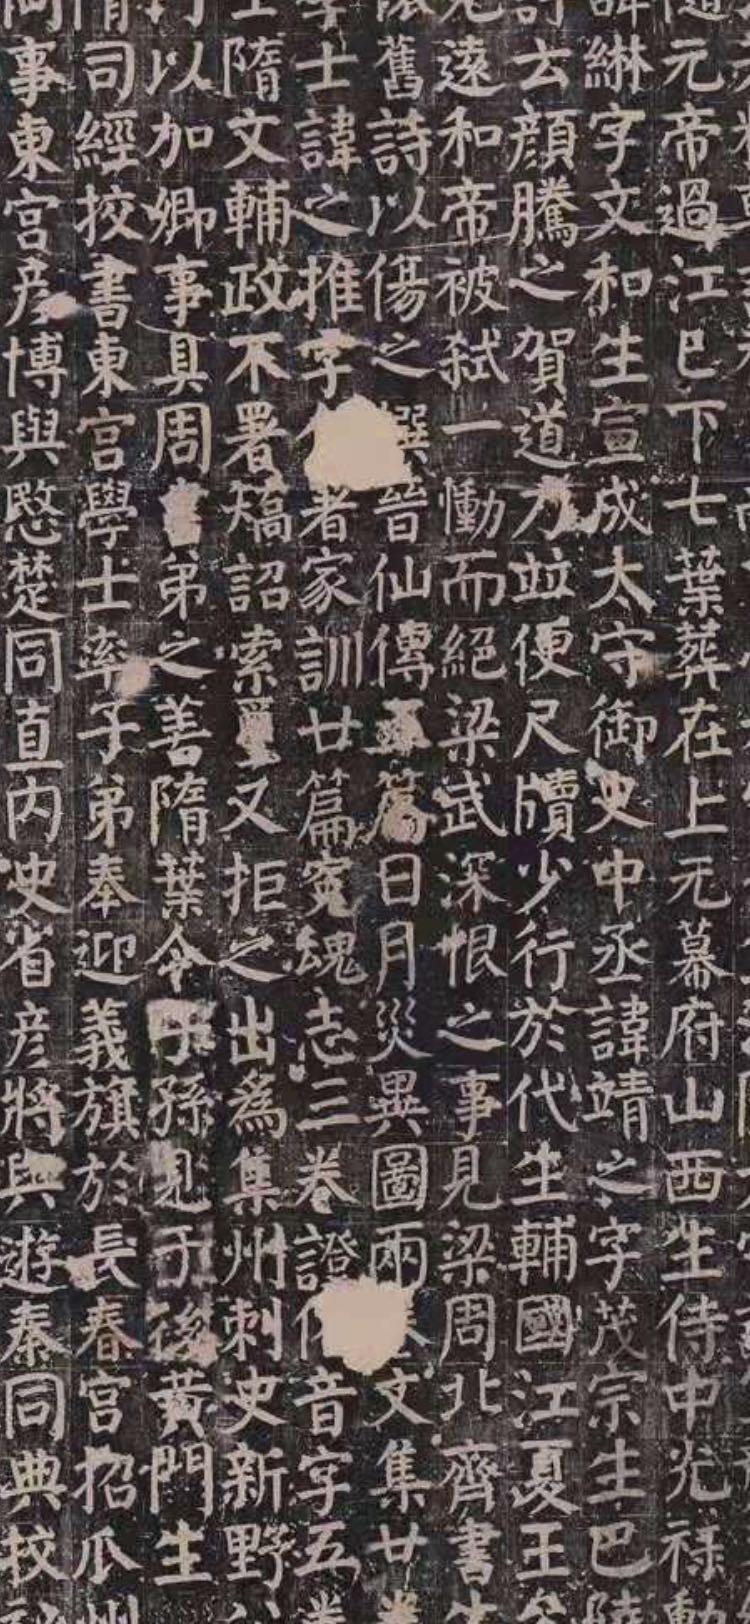 元帝過江已下七葉葬在上元幕府山西生侍中光祿
綝字文和生宣成太守御史中丞諱靖之字茂宗生巴陵
云顏騰之賀道力並便尺牘少行於代生輔國江夏王
見遠和帝被弒一慟而絕梁武深恨之事見梁周北齊書生
舊詩以傷之撰晉仙傳五篇日月災異圖兩文集廿卷
學士諱之推字著家訓廿篇冤魂志三卷證音字五卷
隋文輔政不署矯詔索璽又拒之出為集州刺史新野
以加卿事具周書弟之善隋葉令子孫見于後黃門生
司經挍書東宮學士率子弟奉迎義旗於長春宮招瓜州
事東宮彦博與愍楚同直內史省彦將與遊秦同典校